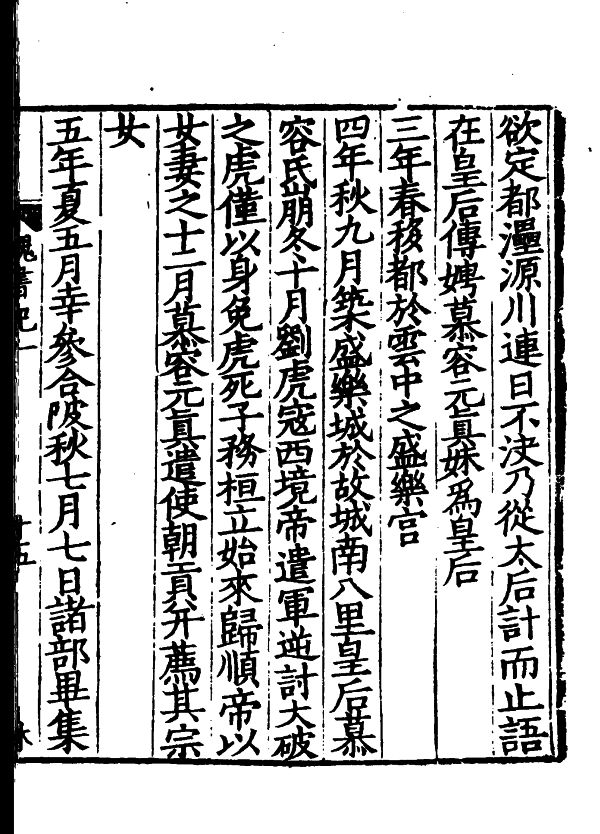 欲定都㶟源川連日不決乃從太后計而止語
在皇后傳娉慕容元真妹爲皇后
三年春移都於雲中之盛樂宮
四年秋九月築盛樂城於故城南八里皇后慕
容氏崩冬十月劉虎寇西境帝遣軍逆討大破
之虎僅以身免虎死子務桓立始來歸順帝以
女妻之十二月慕容元真遣使朝貢并薦其宗
女
五年夏五月幸參合陂秋七月七日諸部畢集
魏書紀一
十五